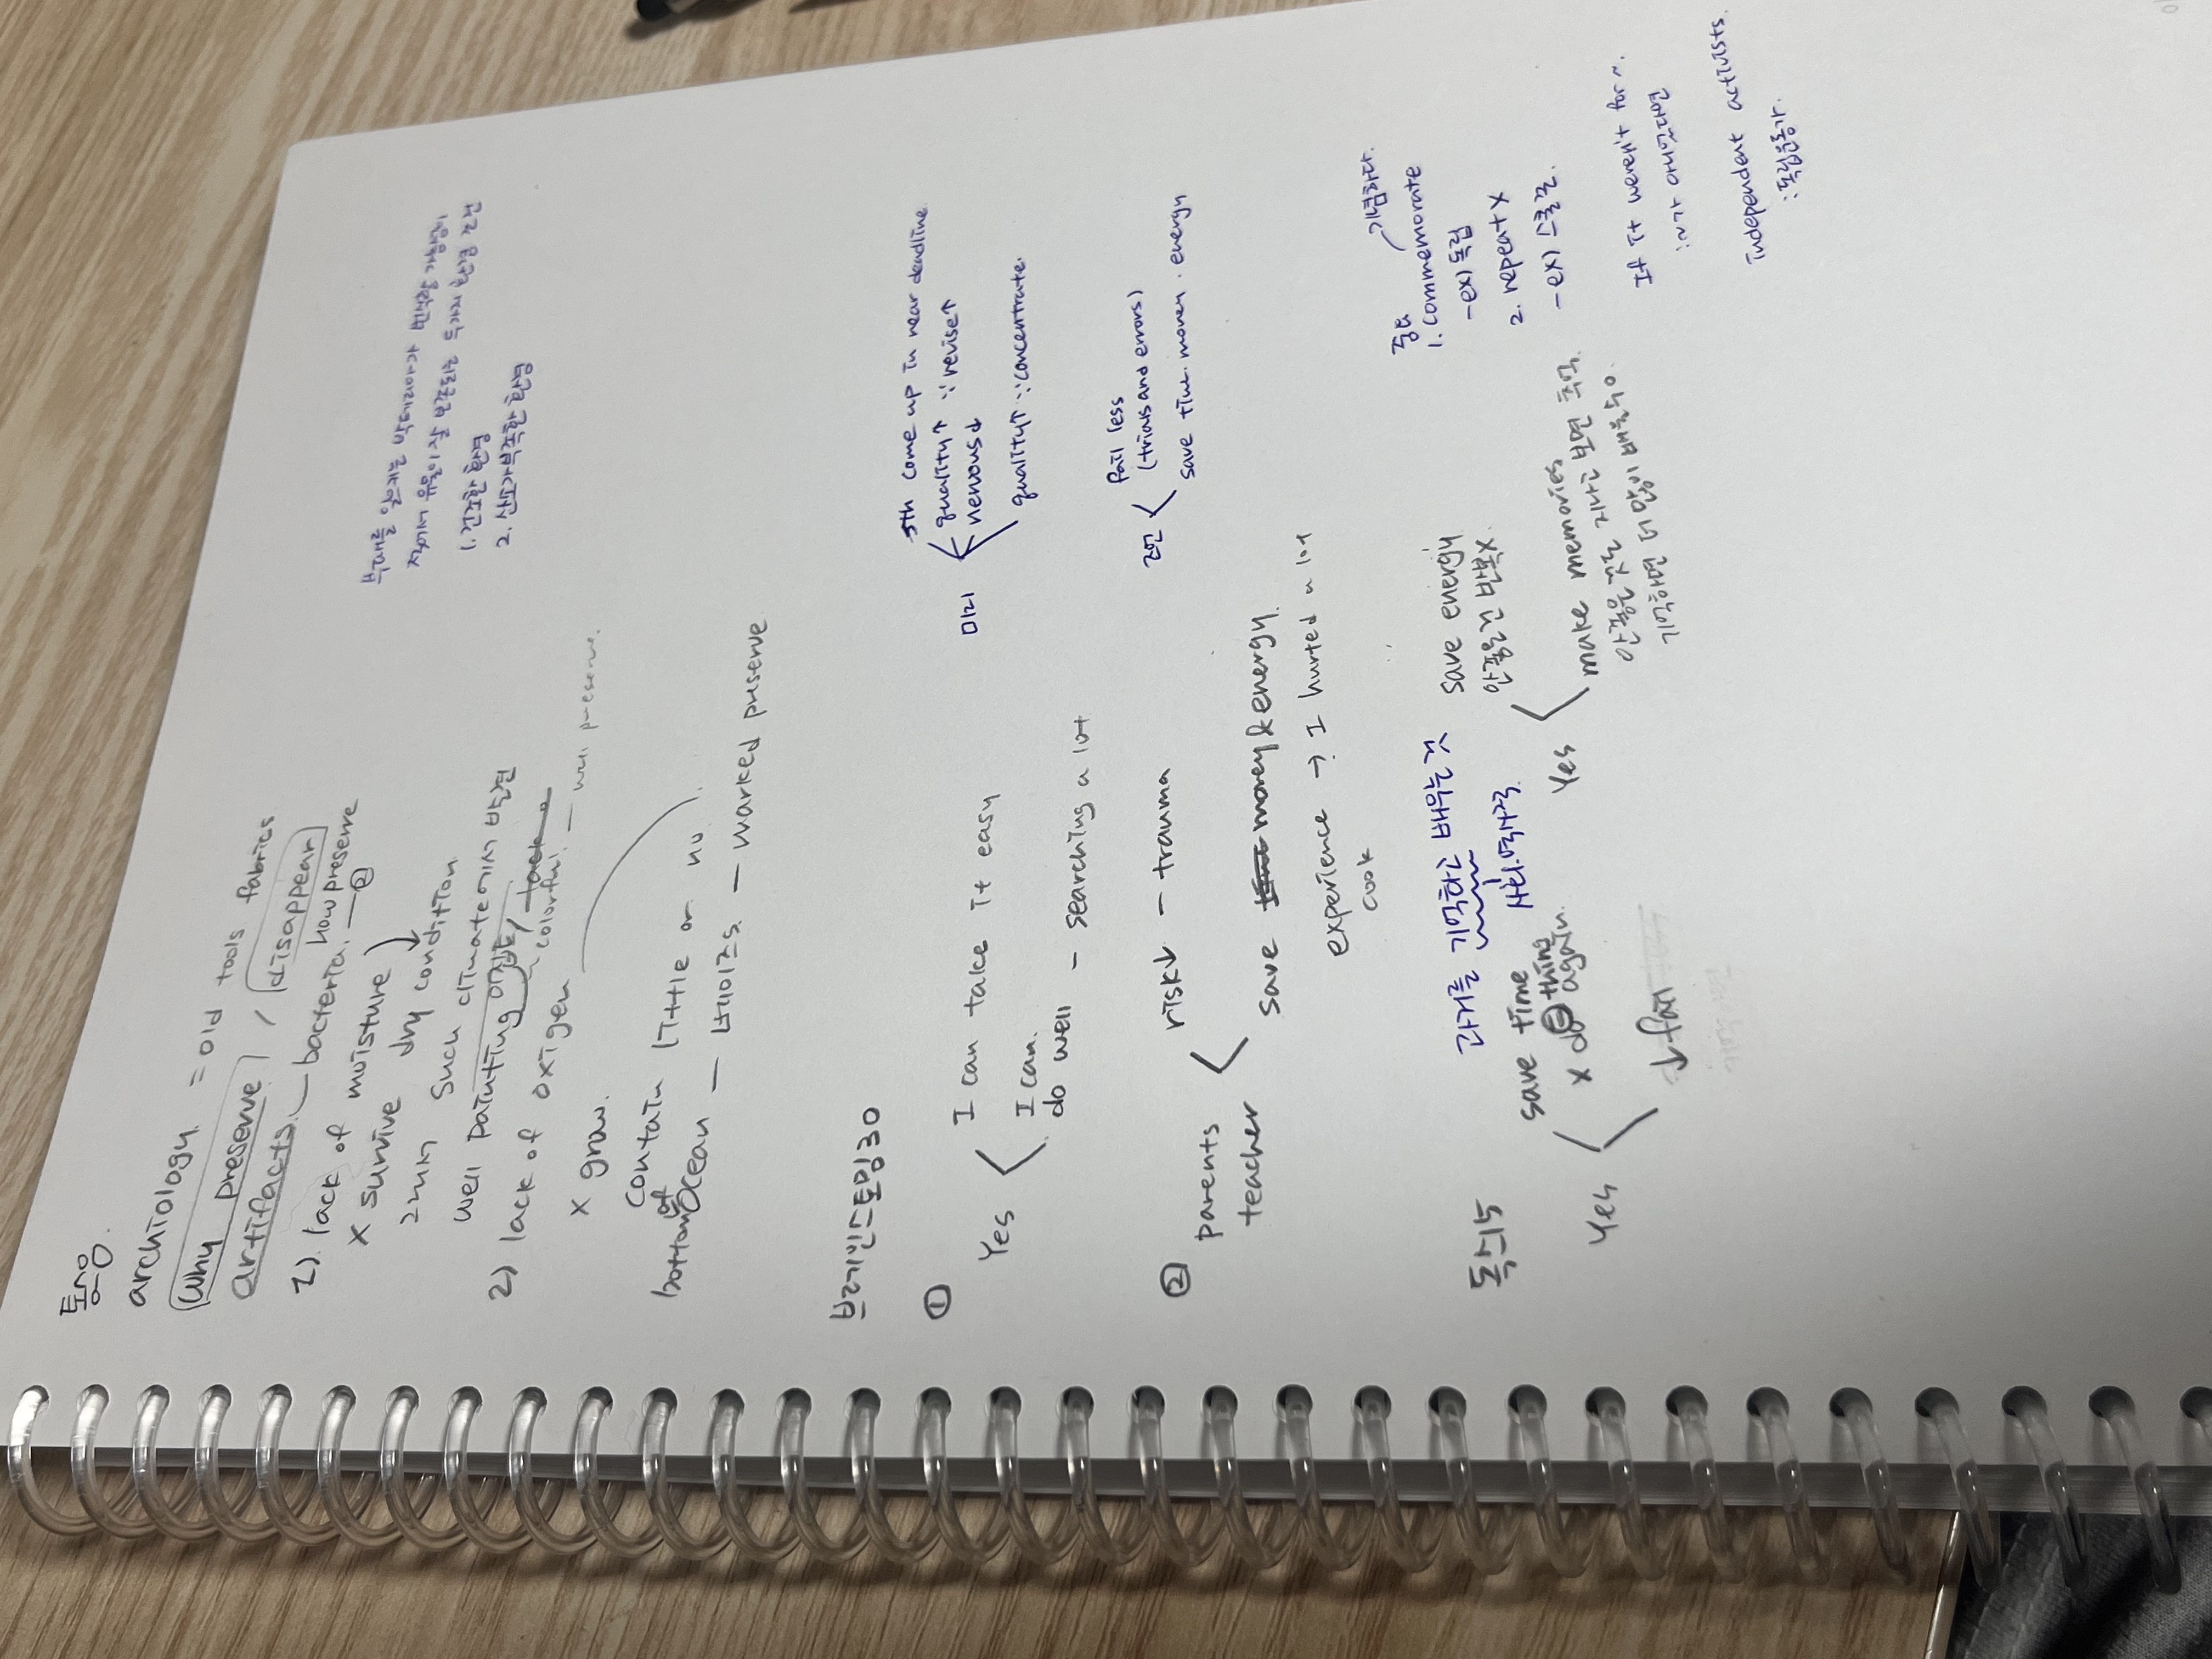 통응
archiology. = old tools fabrics
Why preserve / disappear
artifacts. — bacteria. how preserve
1) lack of moisture — ②
x survive dry condition
such climate에서 발견
well painting
2) lack of oxigen colorful. — well preserve.
x grow.
contain little or no.
bottom of Ocean — 타이타닉. — marked preserve
브레인스토밍30
① Yes
I can take it easy
I can.
do well — searching a lot
미리
5th come up in near deadline
quality↑ ∵ revise↑
nervous↓
quality↑ ∵ concentrate.
② parents
teacher
risk↓ — trauma
save money & energy.
experience → I hurted a lot
cook
조언
fail less
(trials and errors)
save time. money. energy
독스15
과거를 기억하고 배우는 것
사회, 역사적.
Yes
save time
x do thing again.
↓ fail
Yes
save energy
안좋을건 반복X
make memories
안좋은 것도 지나고 보면 추억.
기억하면 더 많이 배울 수 o.
기념하다.
1. commemorate
-ex) 독립
2. repeat x
-ex)
If it weren't for ~.
: ~가 아니었다면
independent activists.
: 독립운동가.